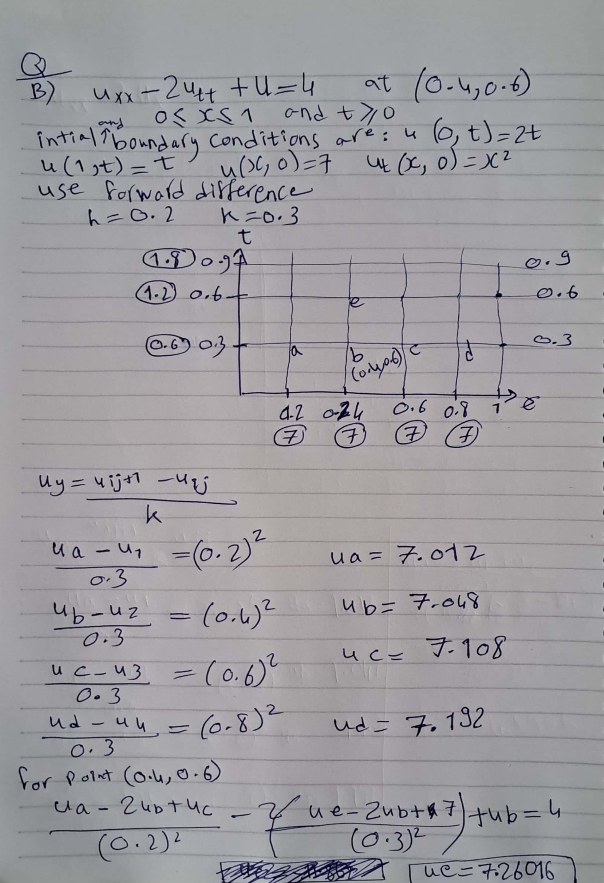 Q
B) uxx - 2utt + u = 4 at (0.4, 0.6)
0 ≤ x ≤ 1 and t ≥ 0
intial and boundary conditions are: u (0, t) = 2t
u(1, t) = t u(x, 0) = 7 ut (x, 0) = x²
use forward difference
h = 0.2 k = 0.3
t
1.8 0.9 0.9
1.2 0.6 e 0.6
0.6 0.3 a b c d 0.3
(0.4, 0.6)
0.2 0.4 0.6 0.8 1
7 7 7 7
uy = (uij+1 - uij) / k
(ua - u1) / 0.3 = (0.2)² ua = 7.012
(ub - u2) / 0.3 = (0.4)² ub = 7.048
(uc - u3) / 0.3 = (0.6)² uc = 7.108
(ud - u4) / 0.3 = (0.8)² ud = 7.192
for point (0.4, 0.6)
(ua - 2ub + uc) / (0.2)² - 2((ue - 2ub + 7) / (0.3)²) + ub = 4
uc = 7.26016